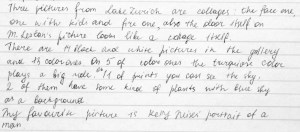 Three pictures from Lake Zurich are collages: the face one,
one with kids and fire one, also the door itself on
M. Leolan's picture looks like a collage itself
There are 14 black and white pictures in the gallery
and 15 color ones. On 5 of color ones the turquoise color
plays a big role. On 11 of prints you can see the sky.
2 of them have some kind of plants with blue sky
as a background
My favourite picture is portrait of a
man